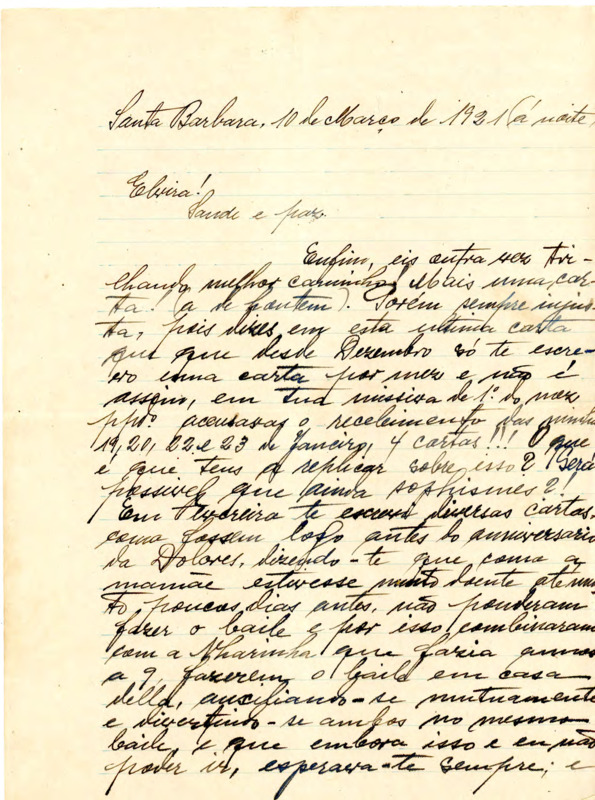 Santa Barbara, 10 de Março de 1921 (á noite)
Elvira!
Saude e paz.
Enfim, eis outra vez tri-
lhando melhor caminho! Mais uma car-
ta! (a de hontem). Porém sempre injus-
ta, pois dizes em esta ultima carta
que que desde Dezembro só te escre-
vo uma carta por mez e não é
assim, em tua missiva de 1º do mez
ppdº accusavas o recebimento das minhas
19, 20, 22 e 23 de Janeiro, 4 cartas!!! O que
é que tens a replicar sobre isso? Será
possivel que ainda sophismes?
Em Fevereiro te escrevi diversas cartas,
como fossem logo antes do anniversario
da Dolores, dizendo-te que como a
mamãe estivesse muito doente até mui-
to poucos dias antes, não ponderam
fazer o baile e por isso combinaram
com a Nharinha que fazia annos
a 9, fazerem o baile em casa
della, auxiliando-se mutuamente
e divertindo-se ambos no mesmo
baile, e que embora isso e eu não
poder ir, esperava-te sempre; e